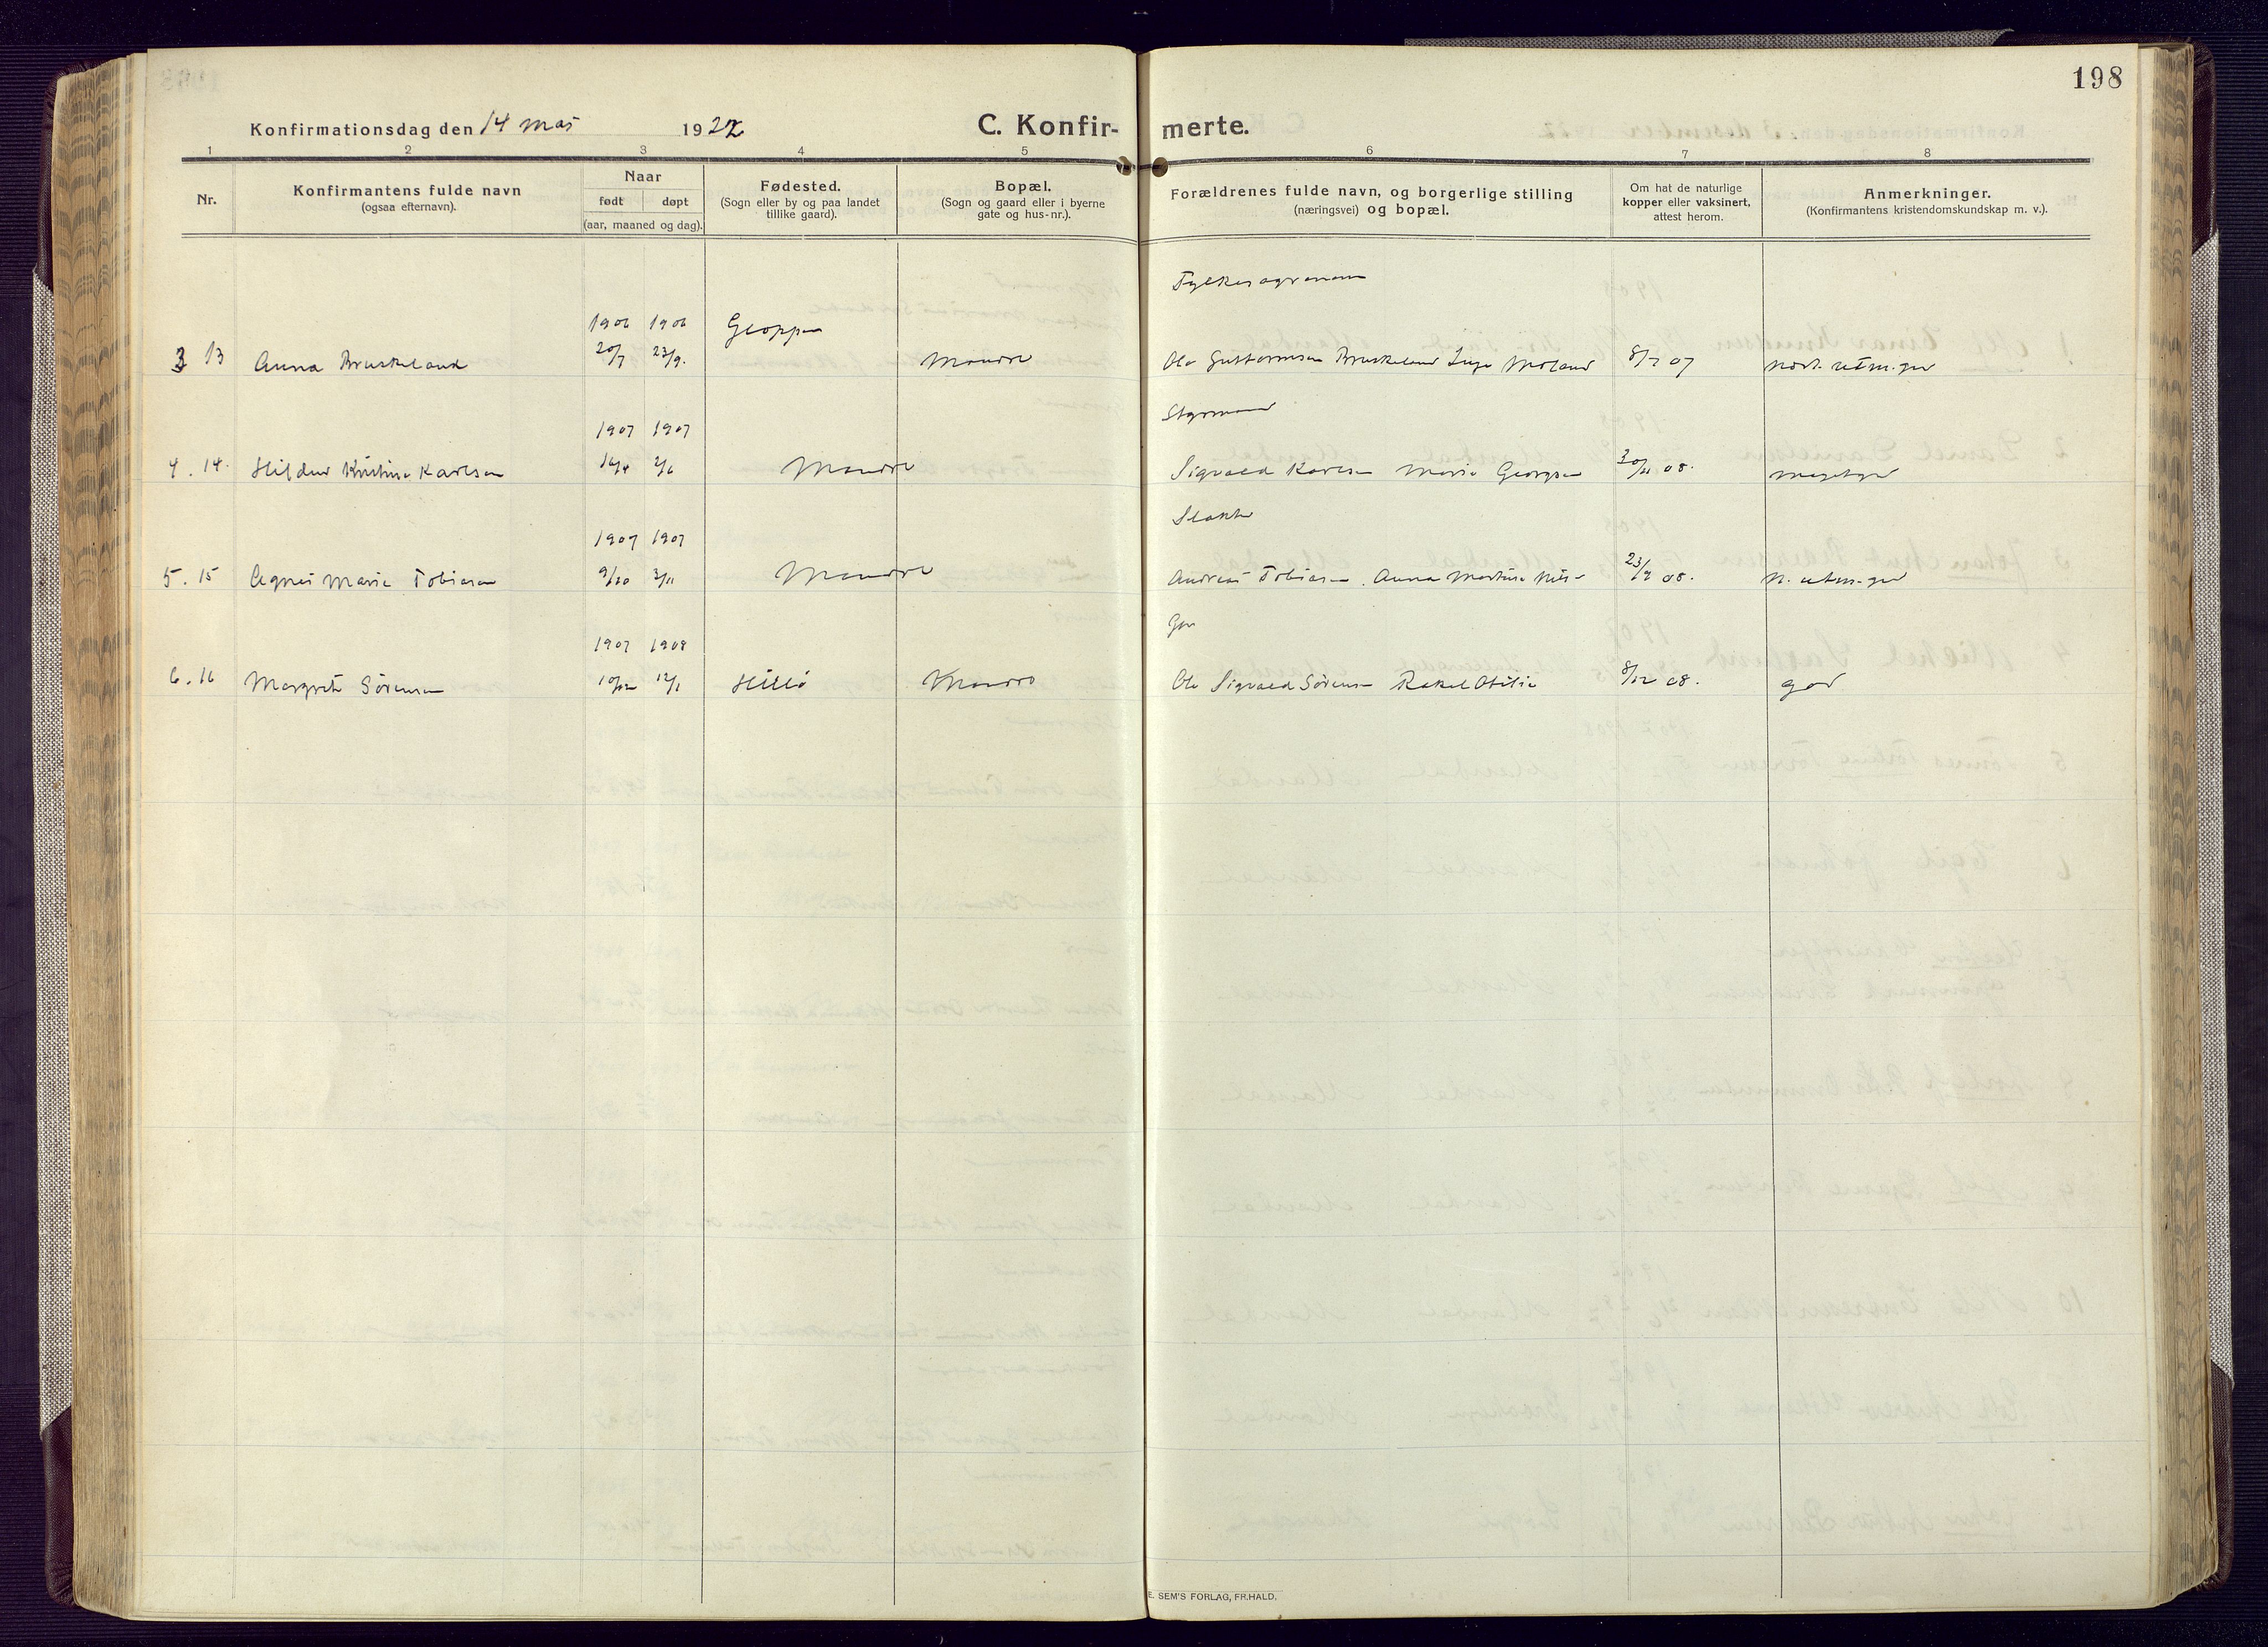 198
Konfirmationsdag den 14 mai 1922
C. Konfir-merte.
1 2 3 4 5 6 7 8
Nr.
Konfirmantens fulde navn
(ogsaa efternavn).
Naar
født døpt
(aar, maaned og dag).
Fødested.
(Sogn eller by og paa landet
tillike gaard).
Bopæl.
(Sogn og gaard eller i byerne
gate og hus-nr.).
Forældrenes fulde navn, og borgerlige stilling
(næringsvei) og bopæl.
Om hat de naturlige
kopper eller vaksinert,
attest herom.
Anmerkninger.
(Konfirmantens kristendomskundskap m. v.).
Fylkesagronom
1906 1906 Gloppen
3 13 Anna Bruskeland 20/7 23/9. Mandal Ola Guttormsen Bruskeland Inga Moland 8/7 07 next. utm. god
Styrmand
1907 1907
4. 14. Hildur Kristine Karlsen 16/4 2/6 Mandal Sigvald Karlsen Marie Georgsen 30/11 08. megetgod
Slakter
1907 1907
5. 15 Agnes Marie Tobiasen 9/10 3/11 Mandal Andreas Tobiasen. Anna Martine 23/9 08. n. utm. god
1907 1908
6. 16 Margrete Sørensen 10/12 12/1 Hillø Mandal Ole Sigvald Sørensen Rakel Otilie 8/12 08. god
E. SEM'S FORLAG, FR.HALD.